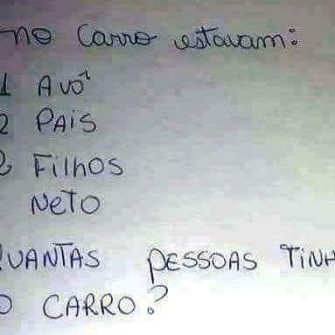 no Carro estavam:
1 Avô
2 PAIS
2 Filhos
NeTO
QUANTAS PESSOAS TINH
O CARRO?